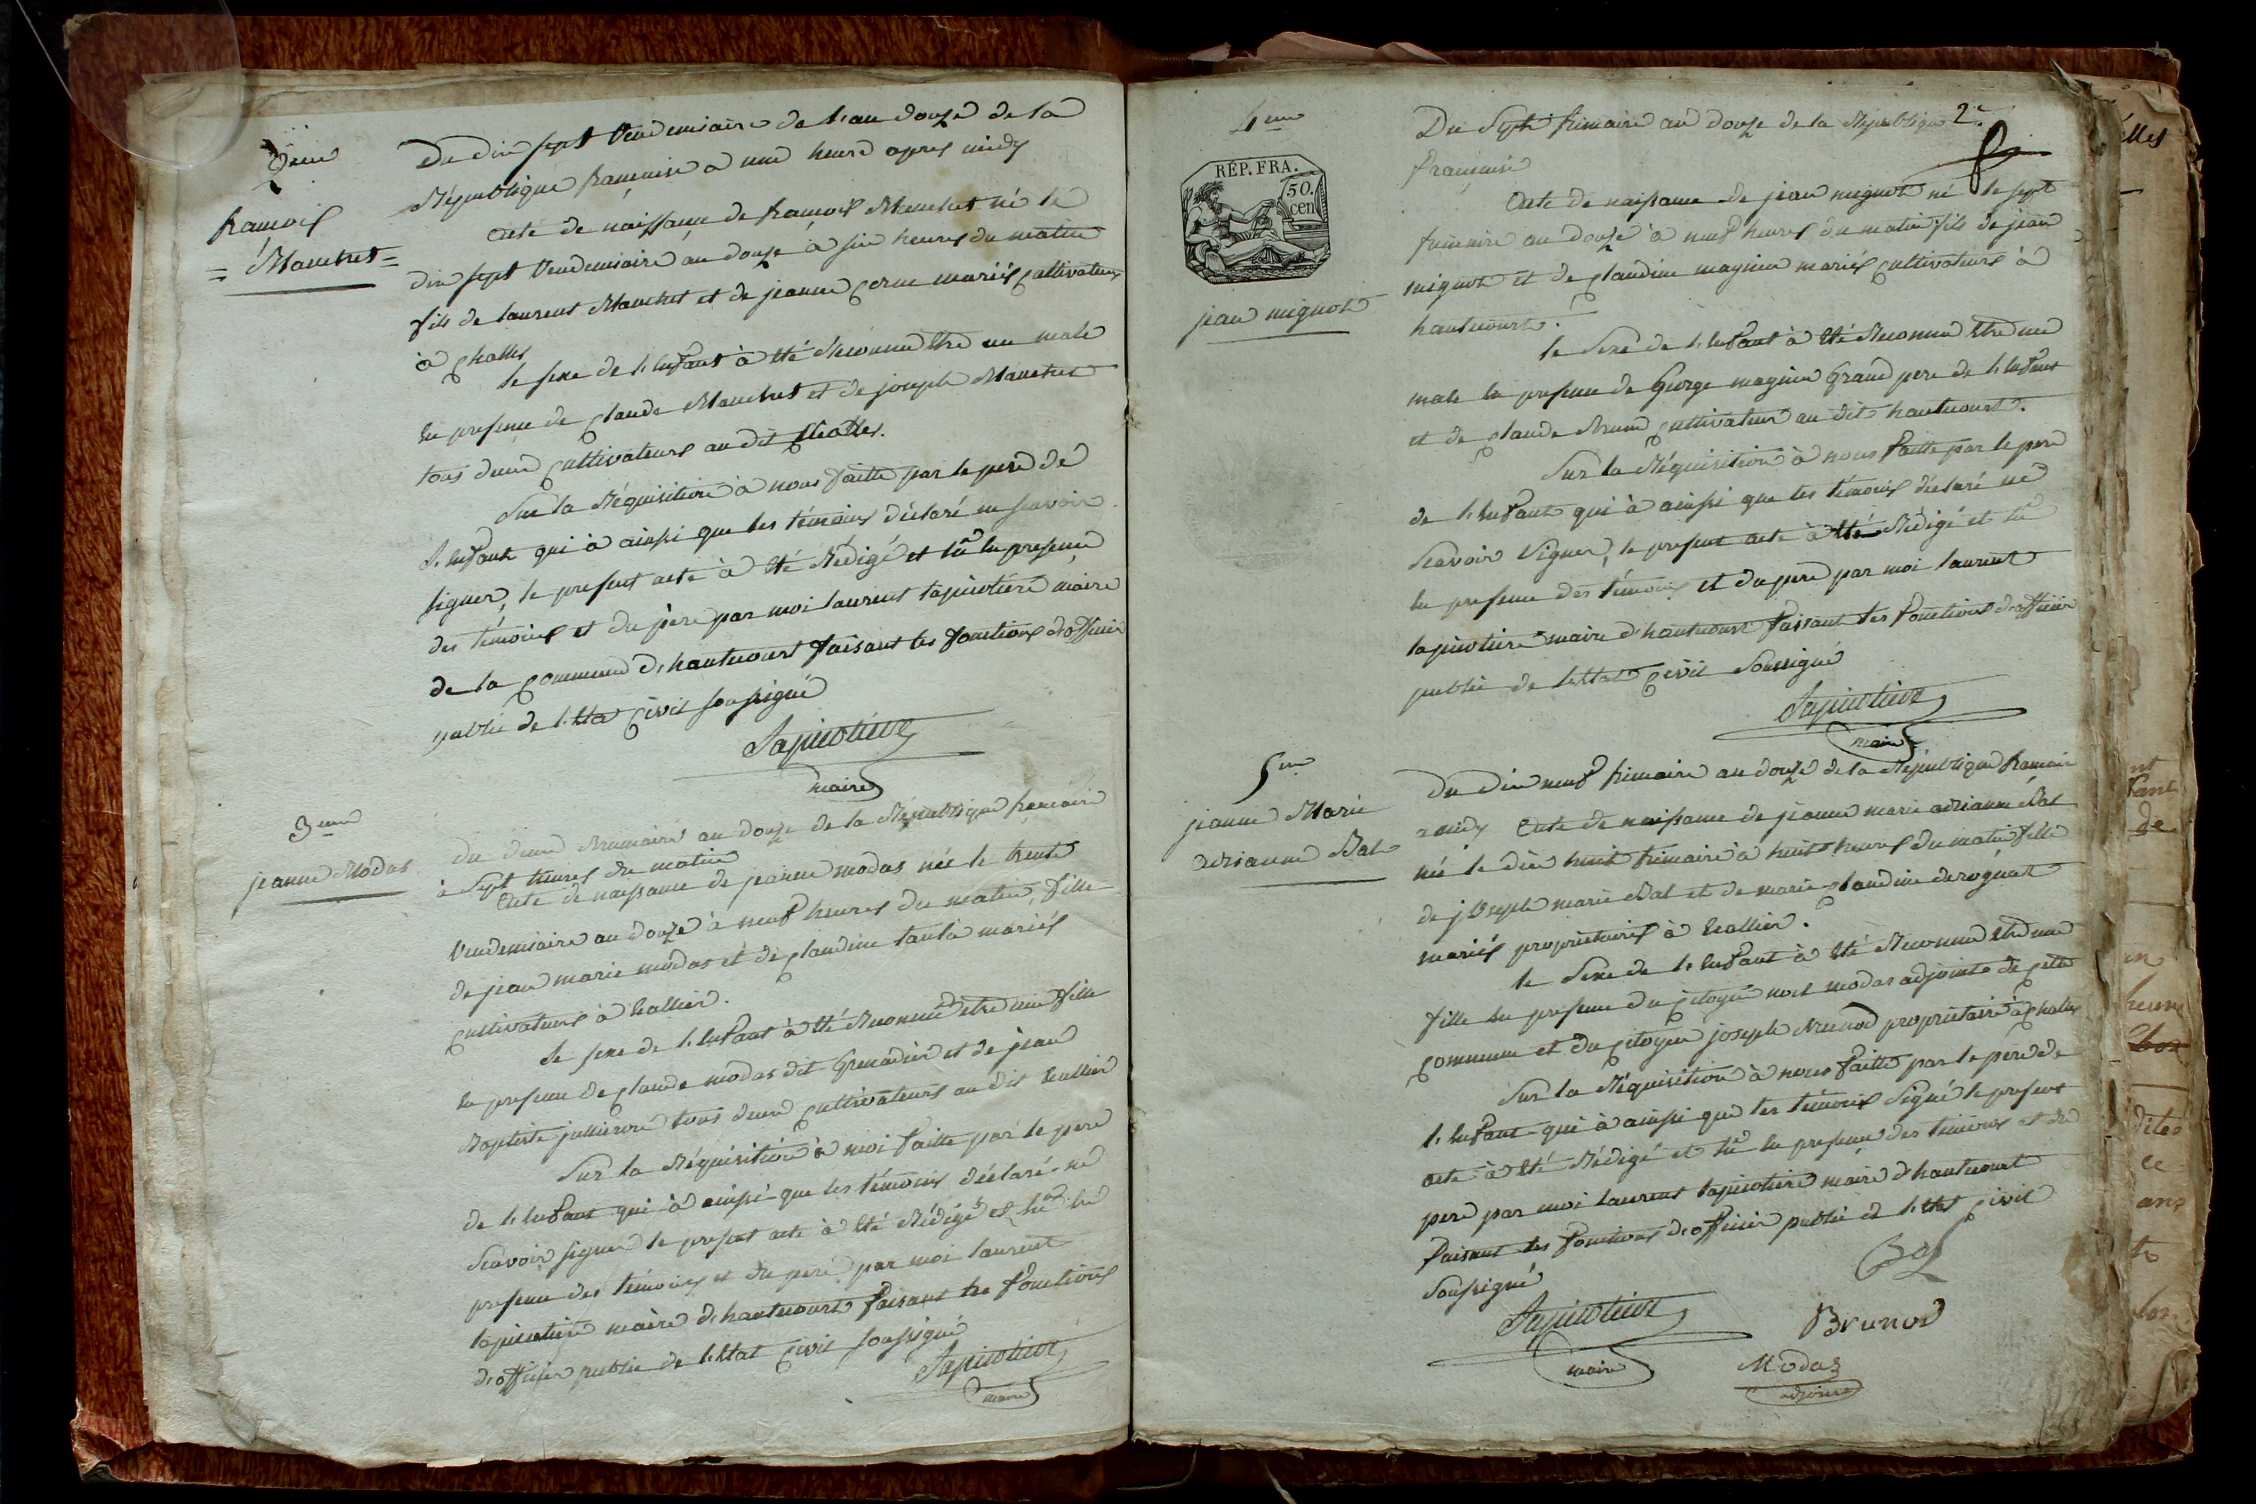 2eme
françois
= Manchet =
Du dix sept Vendemiaire de l'an douze de la
République française a une heure apres midy
Acte de naissance de françois Manchet né le
dix sept Vendemiaire an douze à six heures du matin
fils de laurent Manchet et de jeanne mariés cultivateurs
à challes
le sexe de l'enfant à été Reconnu Etre un male
En presence de claude Manchet et de joseph Manchet
tous deux cultivateurs au dit challes.
Sur la Réquisition à nous faitte par le pere de
l'enfant qui à ainssi que les témoins déclaré ne scavoir
signer, le present acte à été Rédigé et lû En presence
des témoins et du père par moi laurent tapinotiére maire
de la commune d'hautecourt faisant les fonctions d'officier
public de l'Etat civil soussigné
Tapinotiere
maire
3eme
jeanne Modas
du deux Brumaire an douze de la République françoise
à Sept heures du matin
Acte de naissance de jeanne modas née le trente
Vendemiaire an douze à neuf heures du matin, fille
de jean marie modas et de claudine mariés
cultivateurs à
Le sexe de l'Enfant à été Reconnu être une fille
En presence de claude modas dit Grenadier et de jean
Baptiste tous deux cultivateurs au dit
Sur la Réquisition à moi faitte par le pere
de l'Enfant qui à ainssi que les témoins déclaré ne
scavoir signer le present acte à été Rédigé et lû En
presence des témoins et du pere par moi laurent
tapinotiére maire d'hautecourt faisant les fonctions
d'officier public de l'Etat civil soussigné
Tapinotiere
maire
4eme
RÉP. FRA.
50.
cen
jean mignot
2e
Du Sept frimaire an douze de la République
française
Acte de naissance de jean mignot né le sept
frimaire an douze à neuf heures du matin fils de jean
mignot et de claudine magnin mariés cultivateurs à
hautecourt.
le Sexe de l'Enfant à été Reconnu Etre un
male En presence de George magnin Grand pere de l'Enfant
et de claude cultivateur au dit hautecourt.
Sur la Réquisition à nous faitte par le pere
de l'Enfant qui à ainssi que les témoins déclaré ne
scavoir Signer, le present acte à été Rédigé et lû
En presence des témoins et du pere par moi laurent
tapinotiére maire d'hautecourt faisant les fonctions d'officier
public de l'Etat civil Soussigné
Tapinotiere
maire
5me
jeanne Marie
adrianne Bal
Du dix neuf frimaire an douze de la République francaise
a midy Acte de naissance de jeanne marie adrianne Bal
née le dix huit frimaire à huit heures du matin fille
de joseph marie Bal et de marie claudine
mariés proprietaires à
le Sexe de l'Enfant à été Reconnu Etre une
fille En presence du citoyen noel modas adjoint de cette
commune et du citoyen joseph Brunod proprietaire à challes
Sur la Réquisition à nous faitte par le pere de
l'Enfant qui à ainssi que les témoins signé le present
acte à été Rédigé et lû En presence des témoins et du
pere par moi laurent tapinotiére maire d'hautecourt
faisant les fonctions d'officier public de l'Etat civil
Soussigné
Bal
Tapinotiere
maire
Brunod
Modas
adjoint